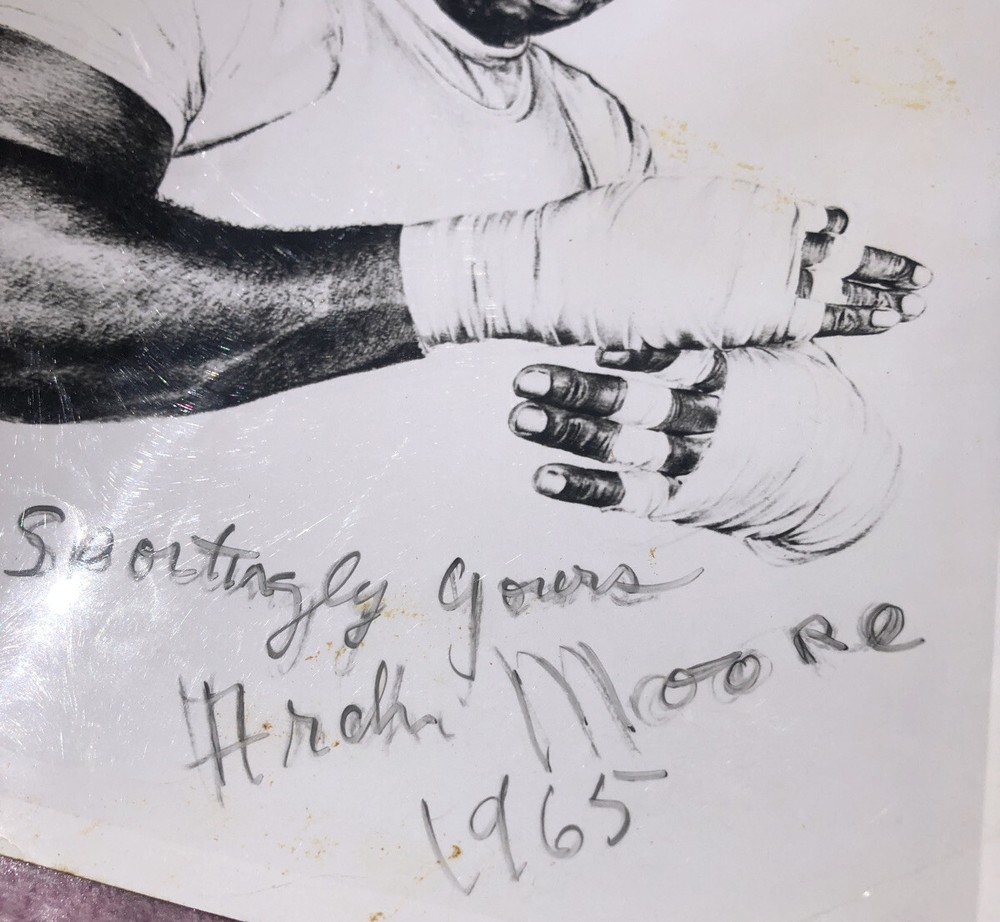 Sportingly yours
Archie Moore
1965